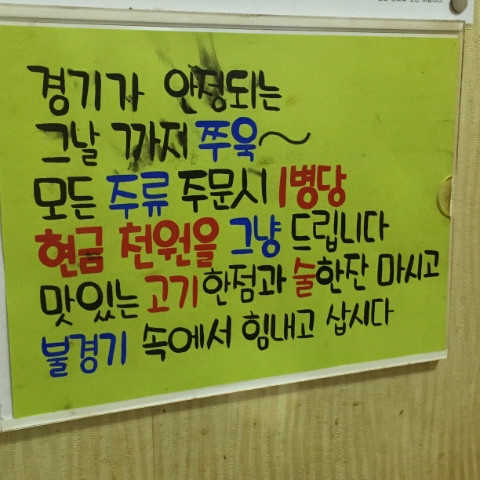 경기가 안정되는
그날 까지 쭈욱~
모든 주류 주문시 1병당
현금 천원을 그냥 드립니다
맛있는 고기 한점과 술한잔 마시고
불경기 속에서 힘내고 삽시다